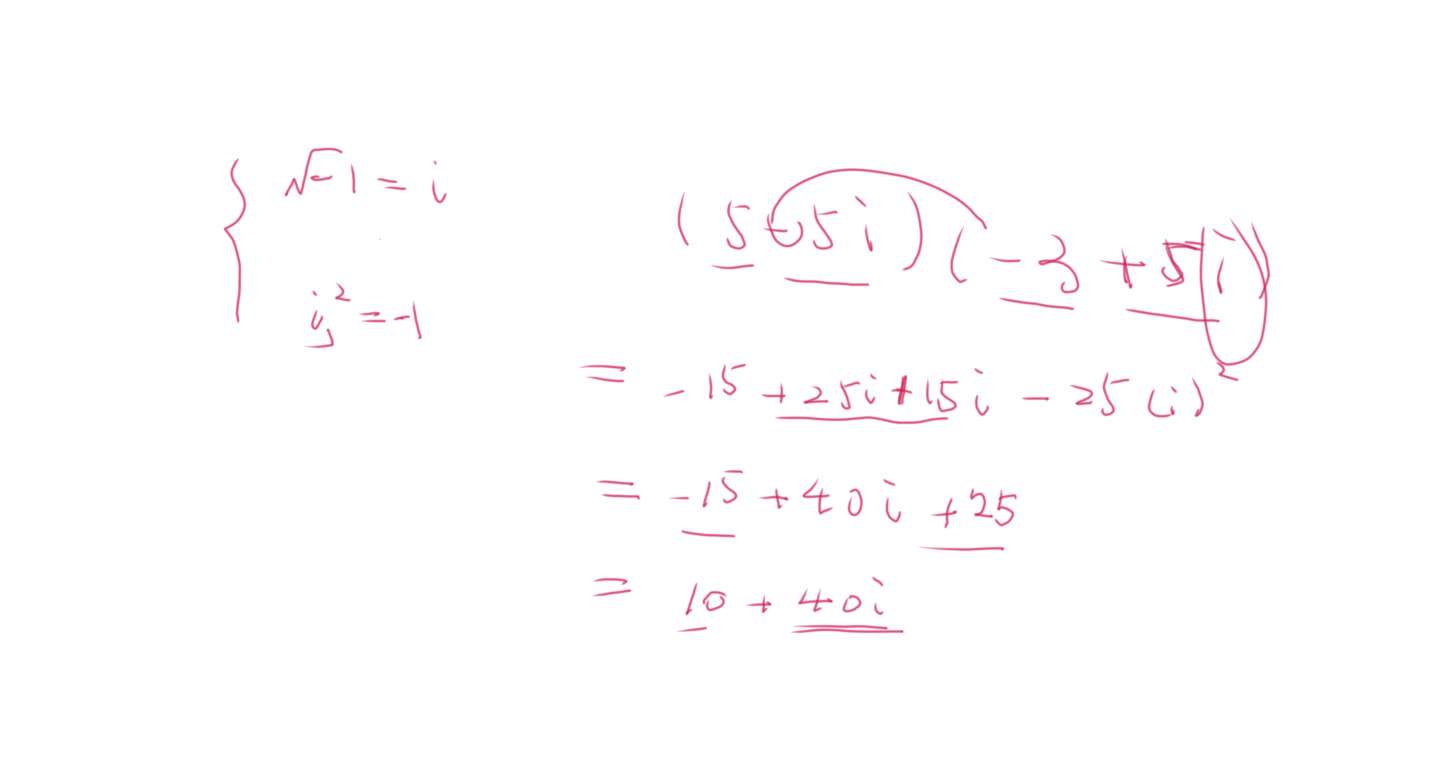 √-1 = i
i² = -1
(5-5i)(-3+5i)
= -15+25i+15i-25(i)²
= -15+40i+25
= 10+40i